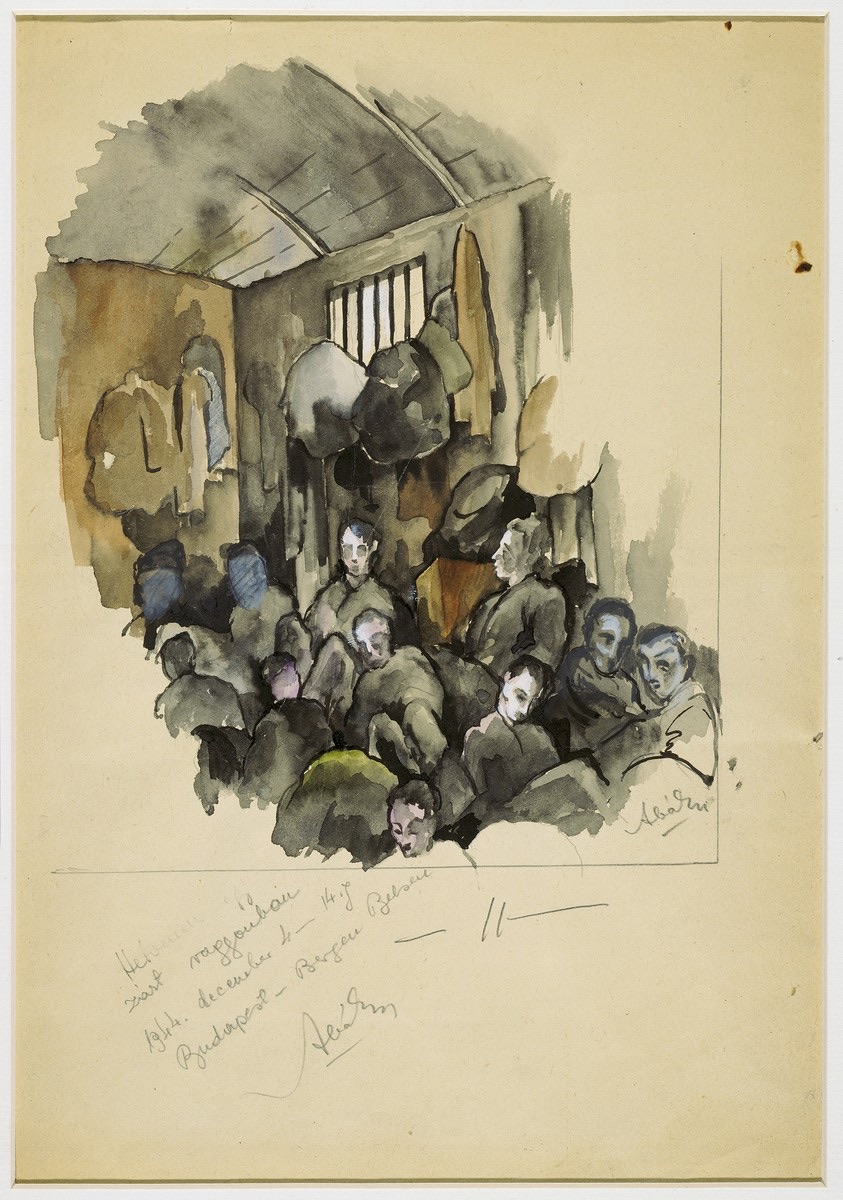 Abádi
zárt vaggonban
1944. december 4 – 14.ig
Budapest – Bergen Belsen
Abádi